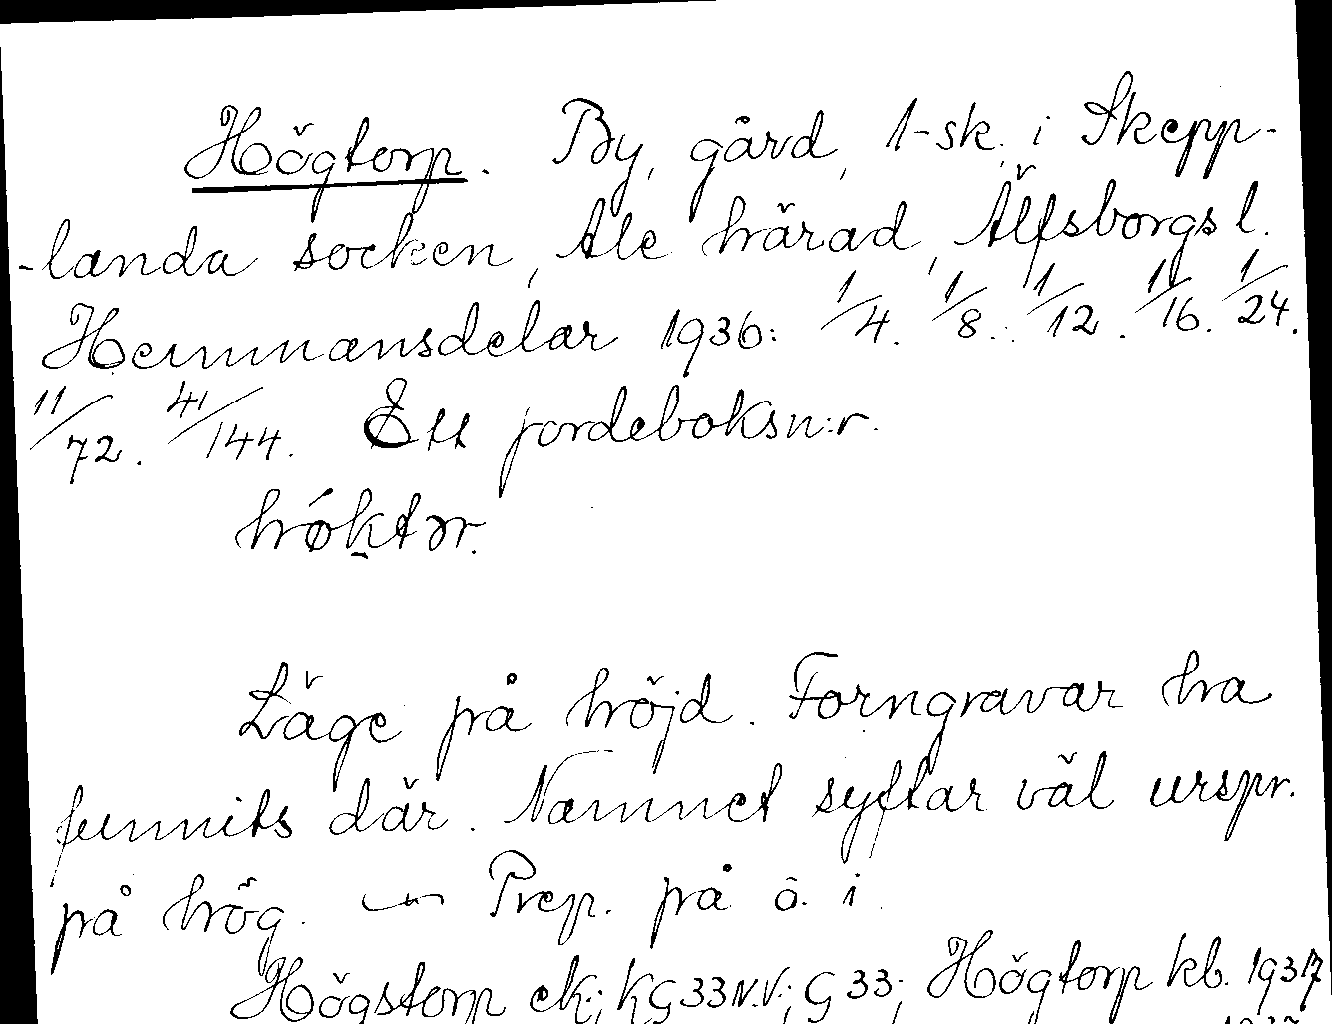 Högtorp. By, gård, 1-sk. i Skepp-
-landa socken, Ale härad, Älfsborgs l.
Hemmansdelar 1936: 1/4. 1/8. 1/12. 1/16. 1/24.
11/72. 41/144. Ett jordeboksn:r.
hǿktər.
Läge på höjd. Forngravar ha
funnits där. Namnet syftar väl urspr.
på hög. — Prep. på o. i
Högstorp ek.; KG 33 N.V.; G 33; Högtorp kb. 1937